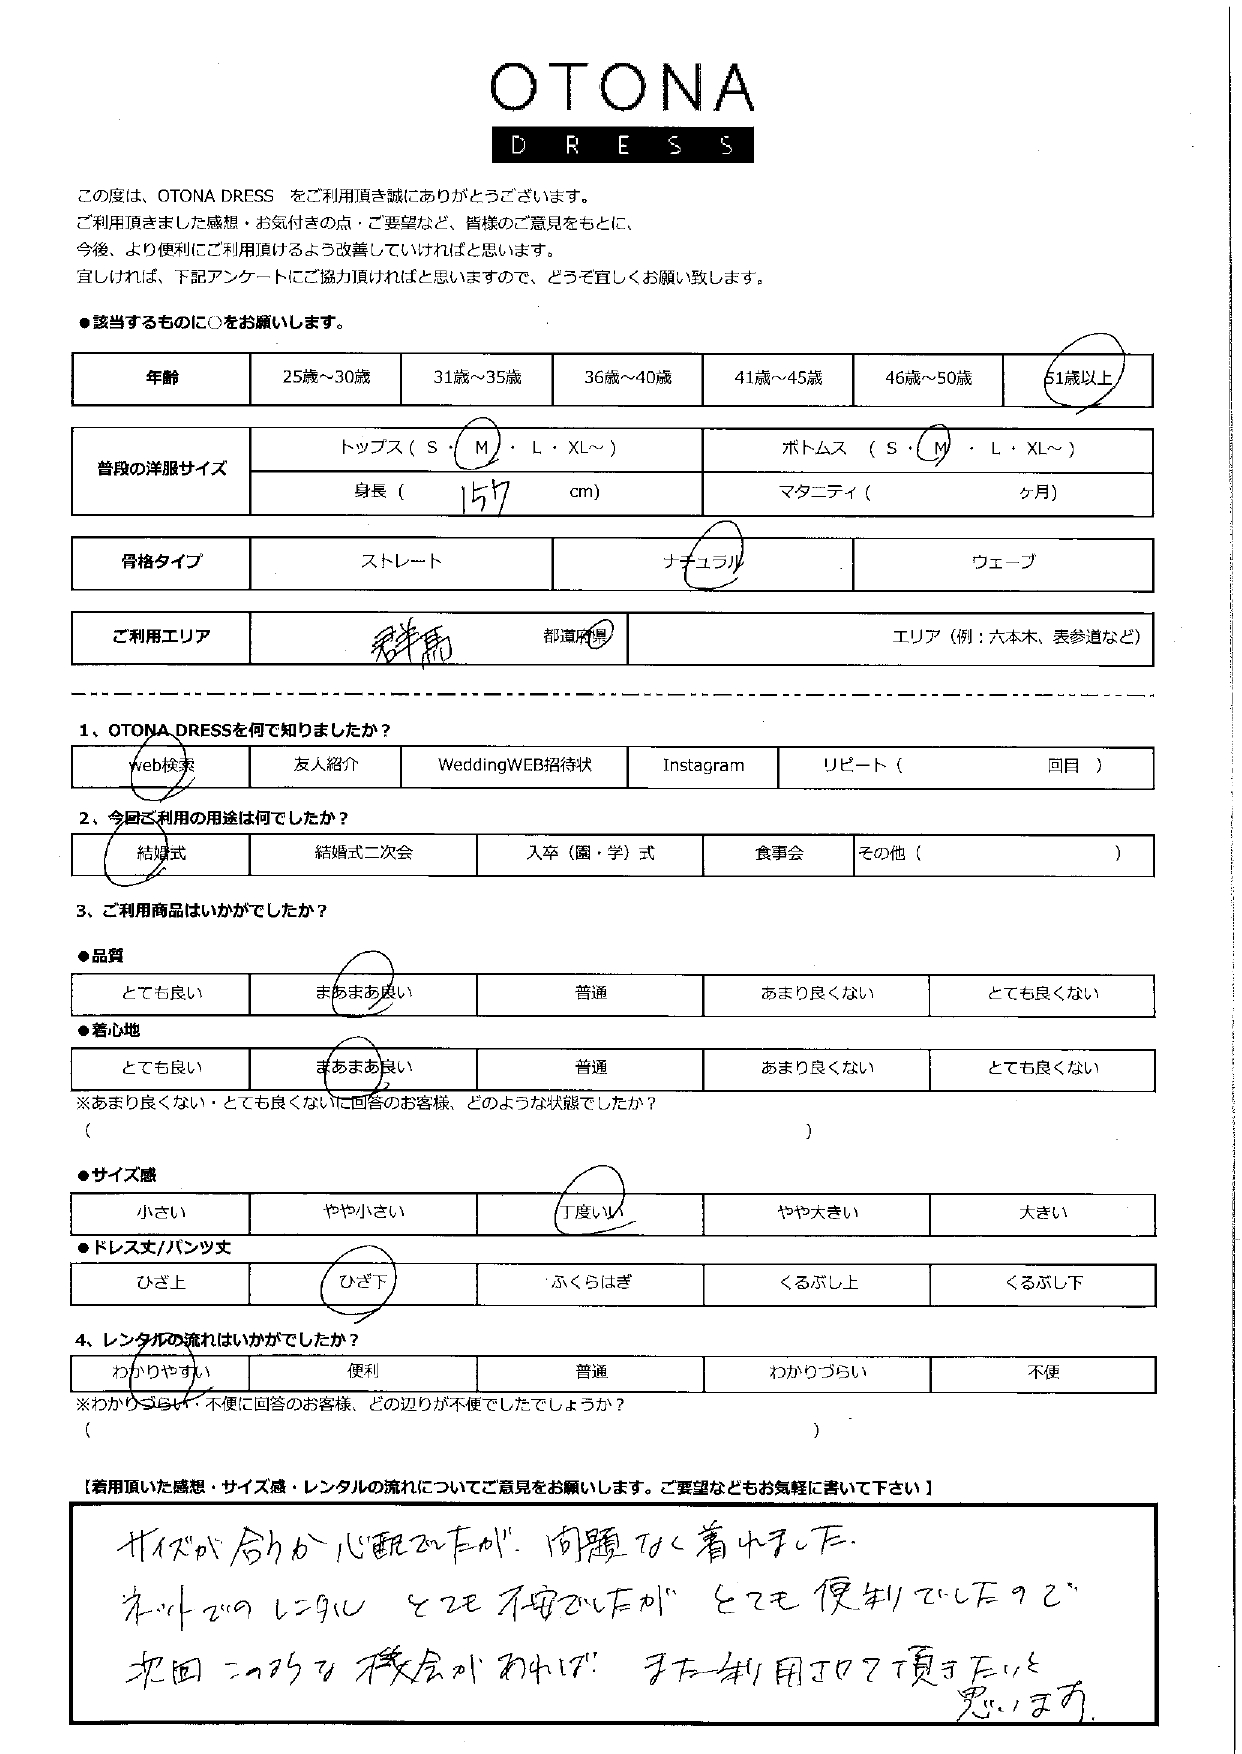 OTONA
DRESS
この度は、OTONA DRESS　をご利用頂き誠にありがとうございます。
ご利用頂きました感想・お気付きの点・ご要望など、皆様のご意見をもとに、
今後、より便利にご利用頂けるよう改善していければと思います。
宜しければ、下記アンケートにご協力頂ければと思いますので、どうぞ宜しくお願い致します。
●該当するものに○をお願いします。
年齢 25歳～30歳 31歳～35歳 36歳～40歳 41歳～45歳 46歳～50歳 51歳以上
普段の洋服サイズ トップス ( S ・ M ・ L ・ XL～ ) ボトムス ( S ・ M ・ L ・ XL～ )
身長 ( 157 cm) マタニティ ( ヶ月)
骨格タイプ ストレート ナチュラル ウェーブ
ご利用エリア 群馬 都道府県 エリア（例：六本木、表参道など）
1、OTONA DRESSを何で知りましたか？
web検索 友人紹介 WeddingWEB招待状 Instagram リピート（ 回目 ）
2、今回ご利用の用途は何でしたか？
結婚式 結婚式二次会 入卒（園・学）式 食事会 その他（ ）
3、ご利用商品はいかがでしたか？
●品質
とても良い まあまあ良い 普通 あまり良くない とても良くない
●着心地
とても良い まあまあ良い 普通 あまり良くない とても良くない
※あまり良くない・とても良くないに回答のお客様、どのような状態でしたか？
( )
●サイズ感
小さい やや小さい 丁度いい やや大きい 大きい
●ドレス丈/パンツ丈
ひざ上 ひざ下 ふくらはぎ くるぶし上 くるぶし下
4、レンタルの流れはいかがでしたか？
わかりやすい 便利 普通 わかりづらい 不便
※わかりづらい・不便に回答のお客様、どの辺りが不便でしたでしょうか？
( )
【着用頂いた感想・サイズ感・レンタルの流れについてご意見をお願いします。ご要望などもお気軽に書いて下さい】
サイズが合うか心配でしたが、問題なく着れました。
ネットでのレンタル とても不安でしたが とても便利でしたので
次回このような機会があれば また利用させて頂きたいと
思います。